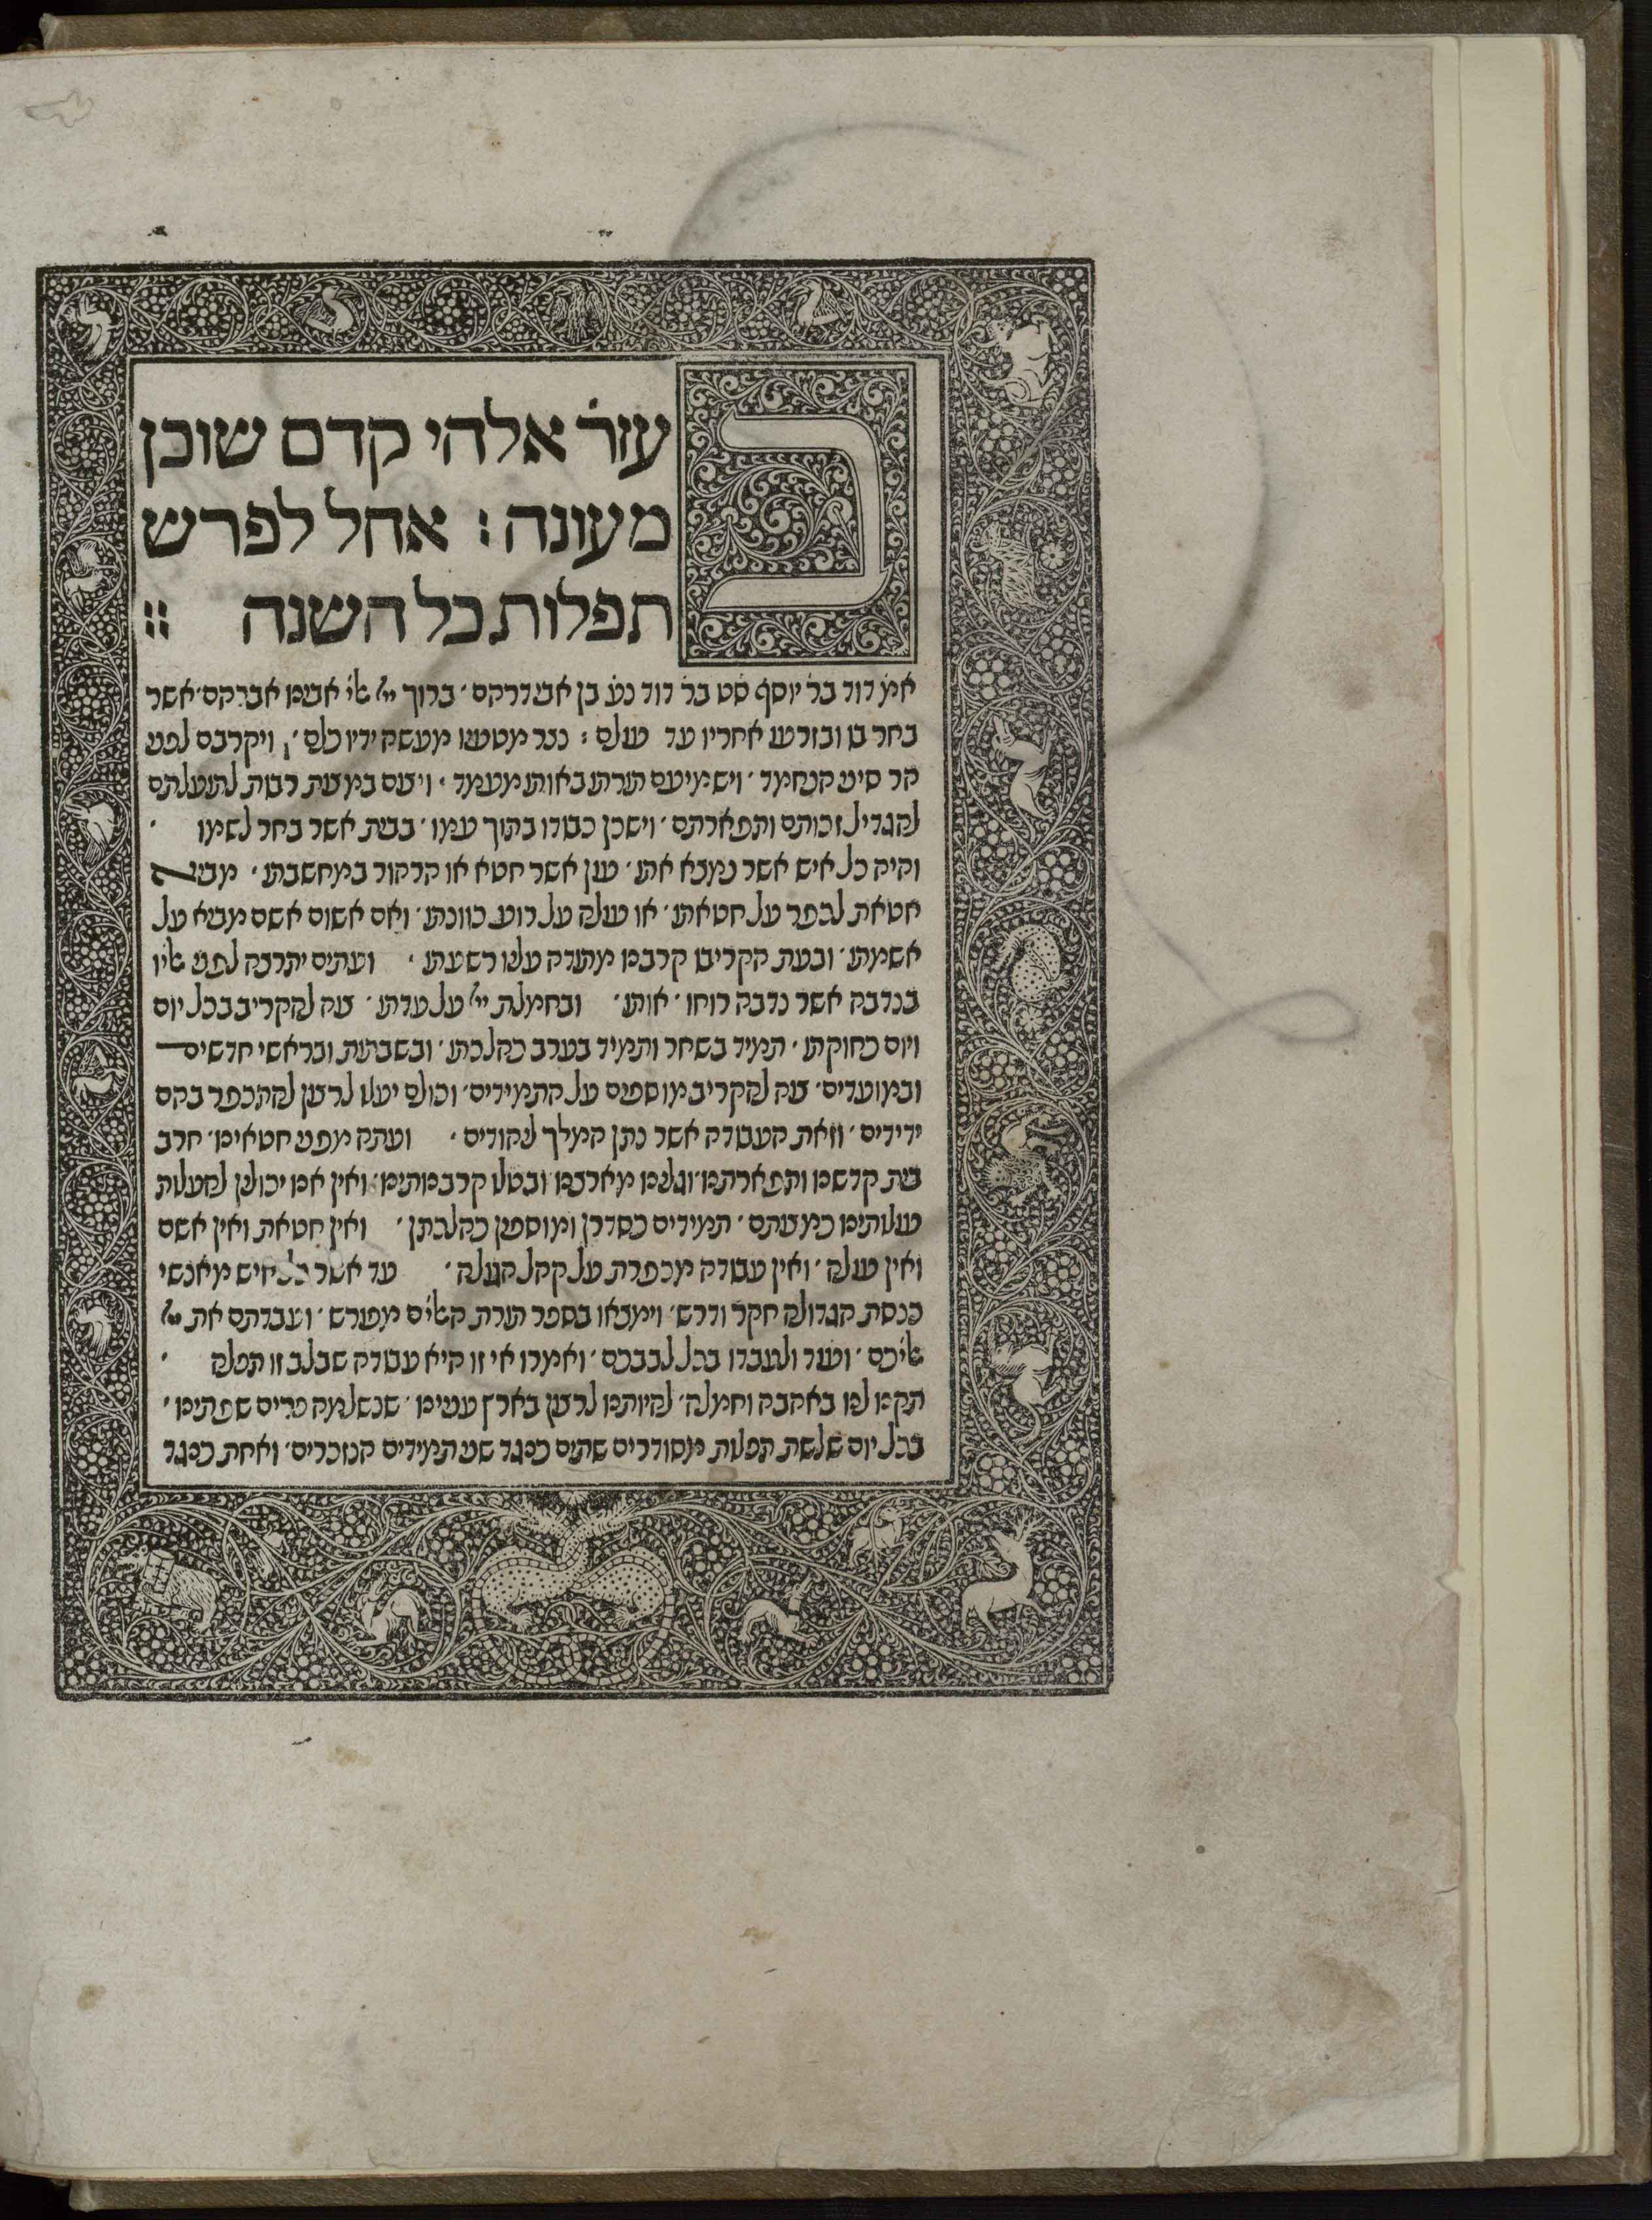 ב
עזר אלהי קדם שוכן
מעונה : אחל לפרש
תפלות כל השנה ::
אמ׳ דוד בר׳ יוסף ס״ט בר׳ דוד נ״ע בן אבודרהם · ברוך יי׳ אלהי אבינו אברהם · אשר
בחר בו ובזרעו אחריו עד עולם : נצר מטעיו מעשה ידיו כלם · ויקרבם לפני
הר סיני הנחמד · וישמיעם תורתו באותו מעמד · ויצום במצות רבות לתועלתם
להגדיל זכותם ותפארתם · וישכן כבודו בתוך עמו · בבית אשר בחר לשמו ·
והיה כל איש אשר נמצא אתו · עון אשר חטא או הרהור במחשבתו · מביא
חטאת לכפר על חטאתו · או עולה על רוע כוונתו · ואם אשום אשם מביא על
אשמתו · ובעת הקריבו קרבנו מתודה עליו רשעתו · ועתים יתרצה לפני אלהיו
בנדבה אשר נדבה רוחו אותו · ובחמלת יי׳ על עדתו · צוה להקריב בכל יום
ויום כחוקתו · תמיד בשחר ותמיד בערב כהלכתו · ובשבתות ובראשי חדשים
ובמועדים · צוה להקריב מוספים על התמידים · וכולם יעלו לרצון להתכפר בהם
ידידים · וזאת העבודה אשר נתן המלך ליהודים · ועתה מפני חטאינו · חרב
בית קדשנו ותפארתנו · וגלינו מארצנו ובטלו קרבנותינו · ואין אנו יכולין להעלות
עולותינו כמצותם · תמידים כסדרן ומוספין כהלכתן · ואין חטאת ואין אשם
ואין עולה · ואין עבודה מכפרת על קהל הגולה · עד אשר כל איש מאנשי
כנסת הגדולה חקר ודרש · וימצאו בספר תורת האלהים מפורש · ועבדתם את יי׳
אלהיכם · ועוד ולעבדו בכל לבבכם · ואמרו אי זו היא עבודה שבלב זו תפלה ·
תקנו לנו באהבה וחמלה · להיותנו לרצון בארץ ענינו · שנשלמה פרים שפתינו ·
בכל יום שלשת תפלות מסודרים שתים כנגד שני תמידים הנזכרים · ואחת כנגד